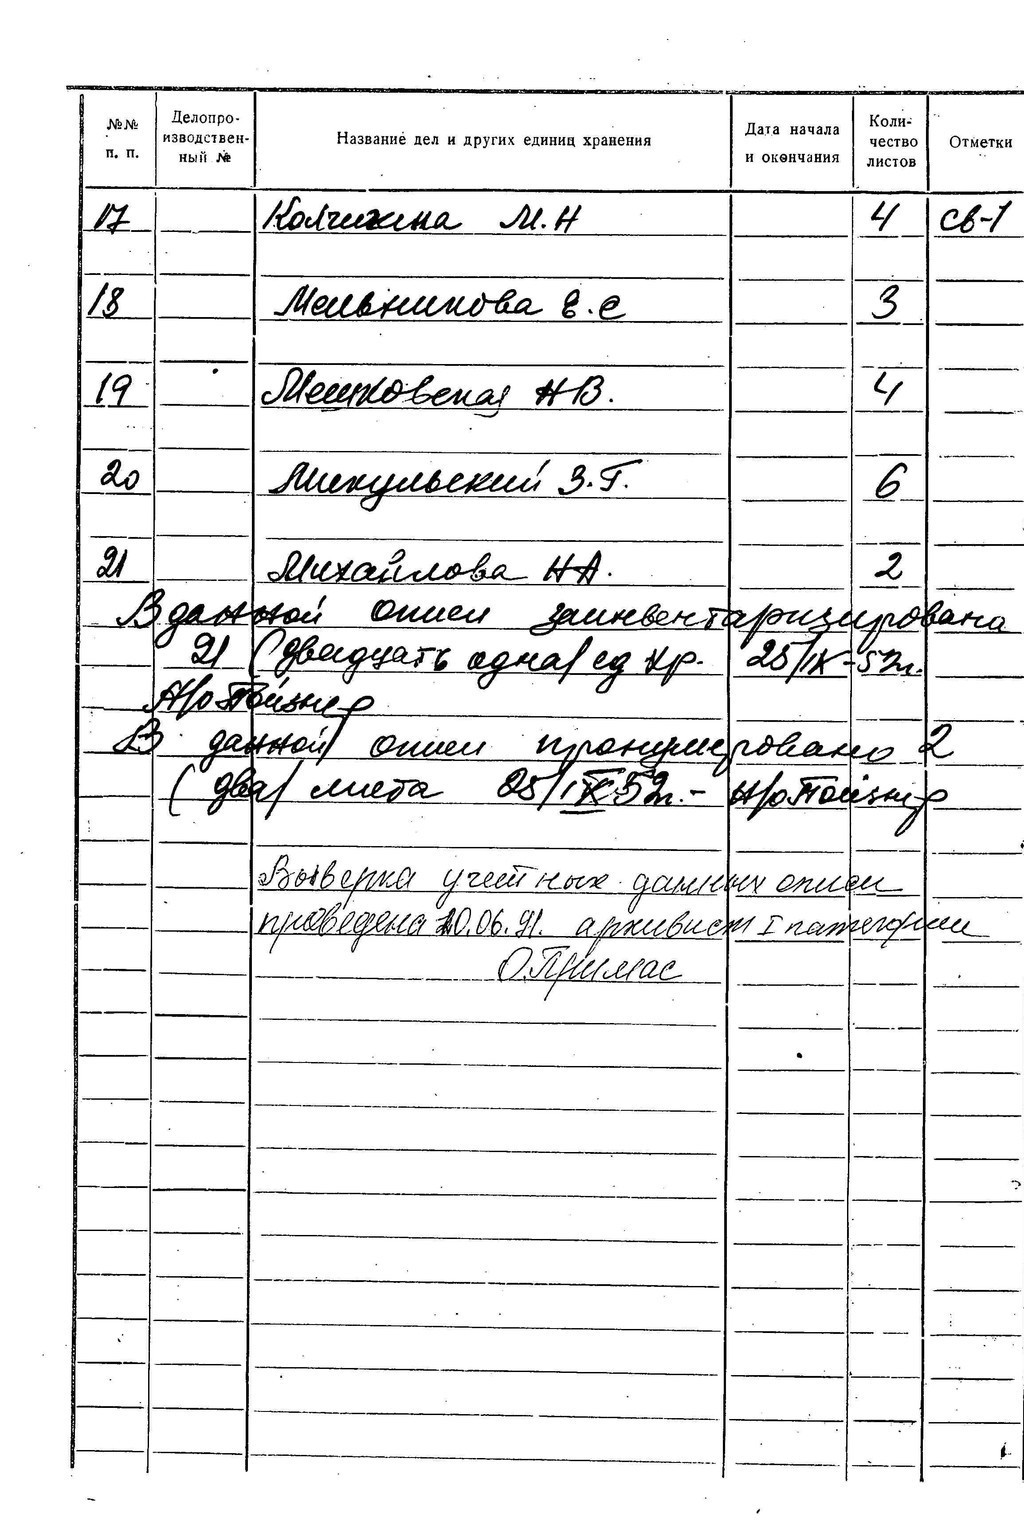 №№ п. п. Делопроизводственный № Название дел и других единиц хранения Дата начала и окончания Количество листов Отметки
17 Колчихина М.Н 4 св-1
18 Мельникова Е.С 3
19 Мешковская Н В. 4
20 Микульский З.Г. 6
21 Михайлова Н А. 2
В данной описи заинвентаризирована
21 (двадцать одна) ед хр. 25/IX-52г.
В данной описи пронумеровано 2
(два) листа 25/IX 52г.-
Выверка учетных данных описи
проведена 20.06.91. архивист I категории
О.Примас